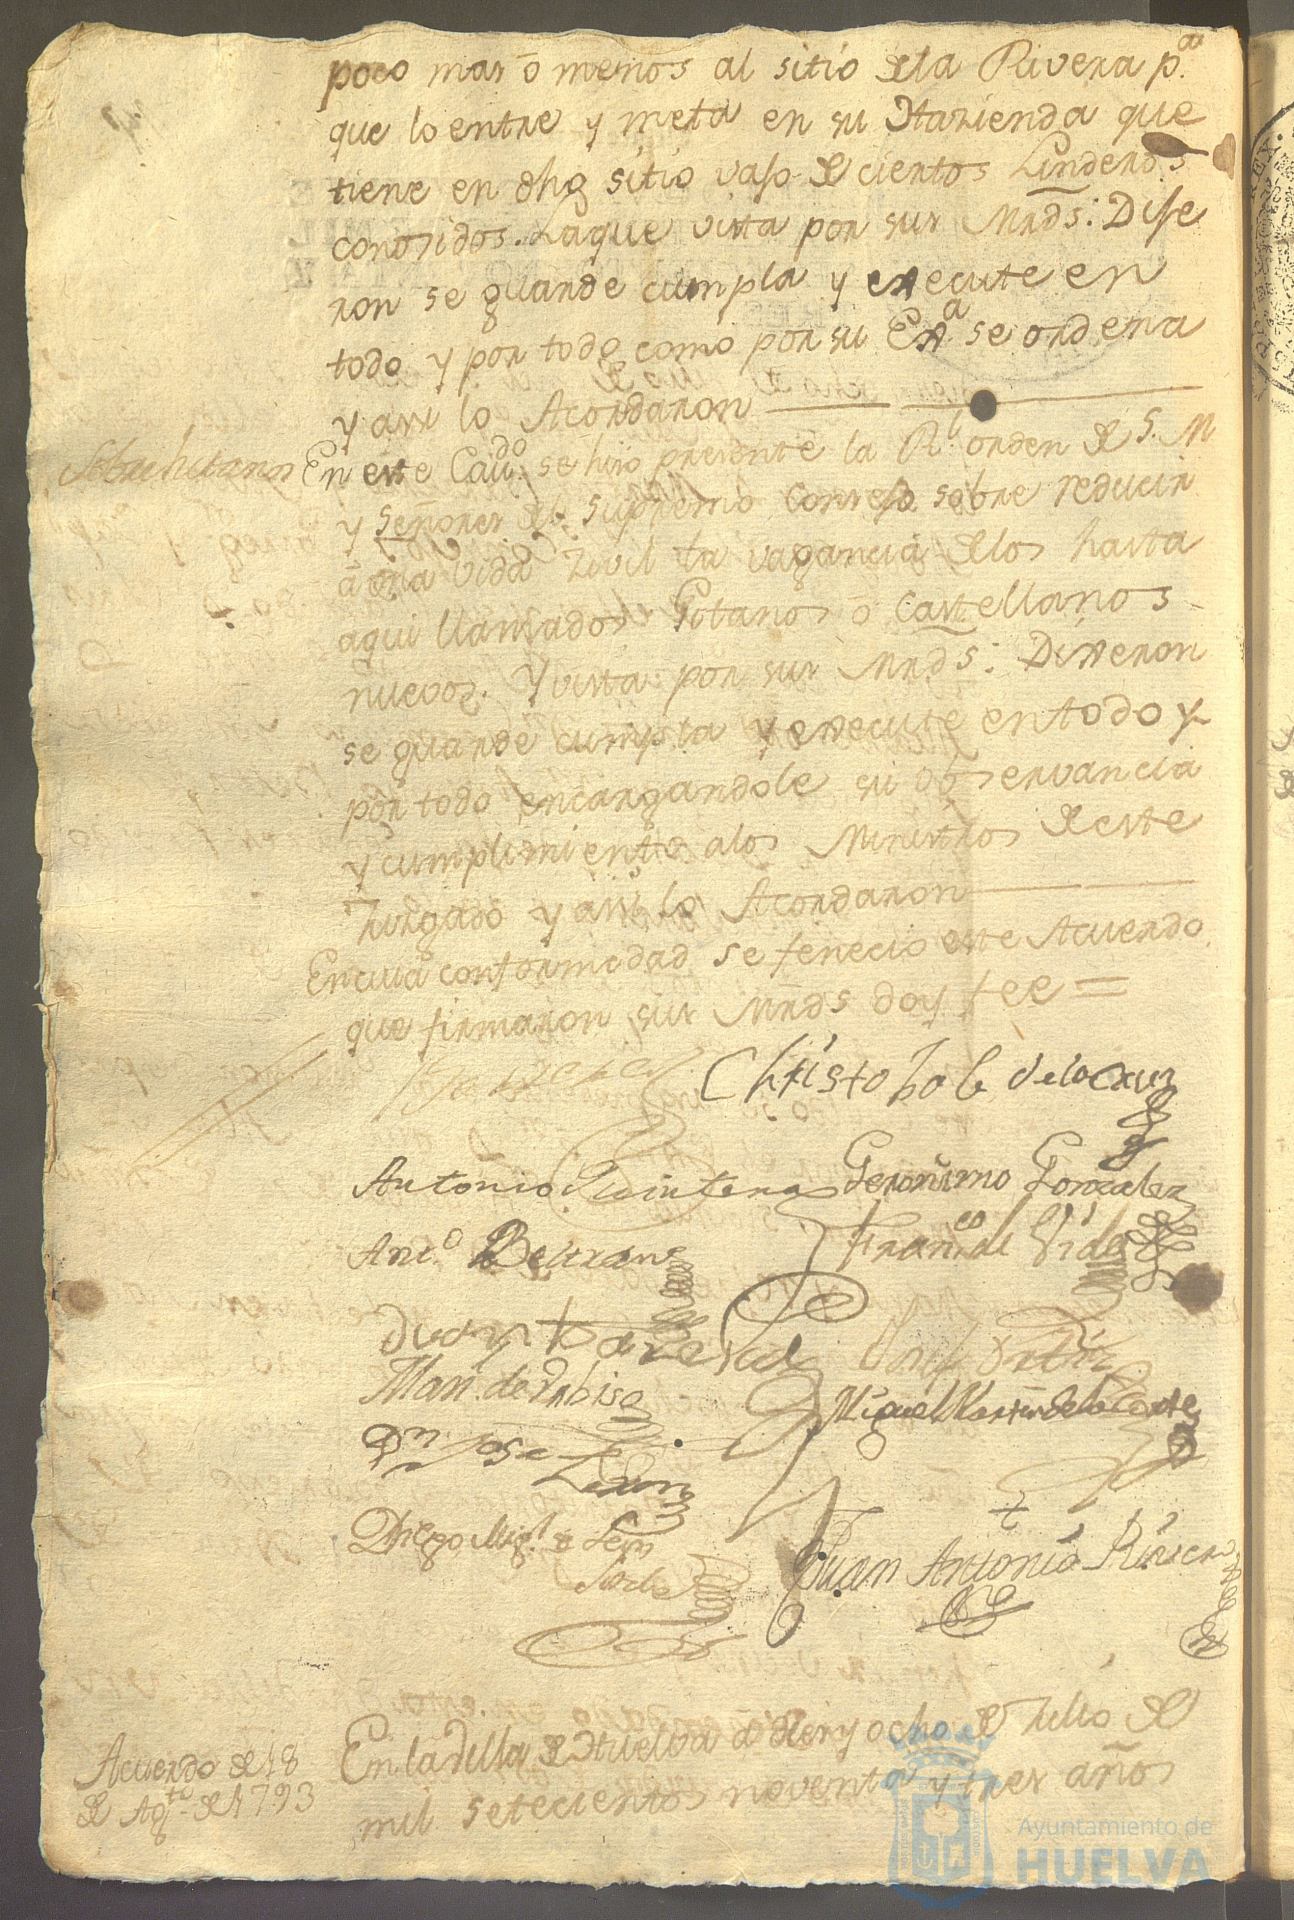 poco mas ó menos al sitio de la Rivera p.ª
que lo entre y meta en su Hazienda que
tiene en dho sitio vajo de ciertos Linderos
conosidos. La que vista por sus Mrds: Dije
ron se guarde cumpla y execute en
todo y por todo como por su Exª se ordena
y assi lo Acordaron
Sobre Gitanos
En este Cavdo: se hizo presente la Rl. orden de S. M
y Señores del Supremo Consejo sobre reducir
á una vida Zivil la vagancia de los hasta
aqui llamados Gitanos ó Castellanos
nuevos. Y vista por sus Mrds: Dixeron
se guarde cumpla y execute en todo y
por todo encargandole su observancia
y cumplimiento a los Ministros de este
Juzgado y assi lo Acordaron
En cuia conformidad se fenecio este Acuerdo
que firmaron sus Mrds doy fee =
Christobal de la Cruz
Antonio Quintero Geronimo Gonzalez
Ant.º Beltran Franco de Vides
Josef Ortiz
Man. de
Miguel Martin de la Corte
Dn Jose
Diego Migl.
Juan Antonio Rivera
Acuerdo de 18
de Agto. de 1793
En la Villa de Huelva a diez y ocho de Julio de
mil setecientos noventa y tres años
Ayuntamiento de
HUELVA